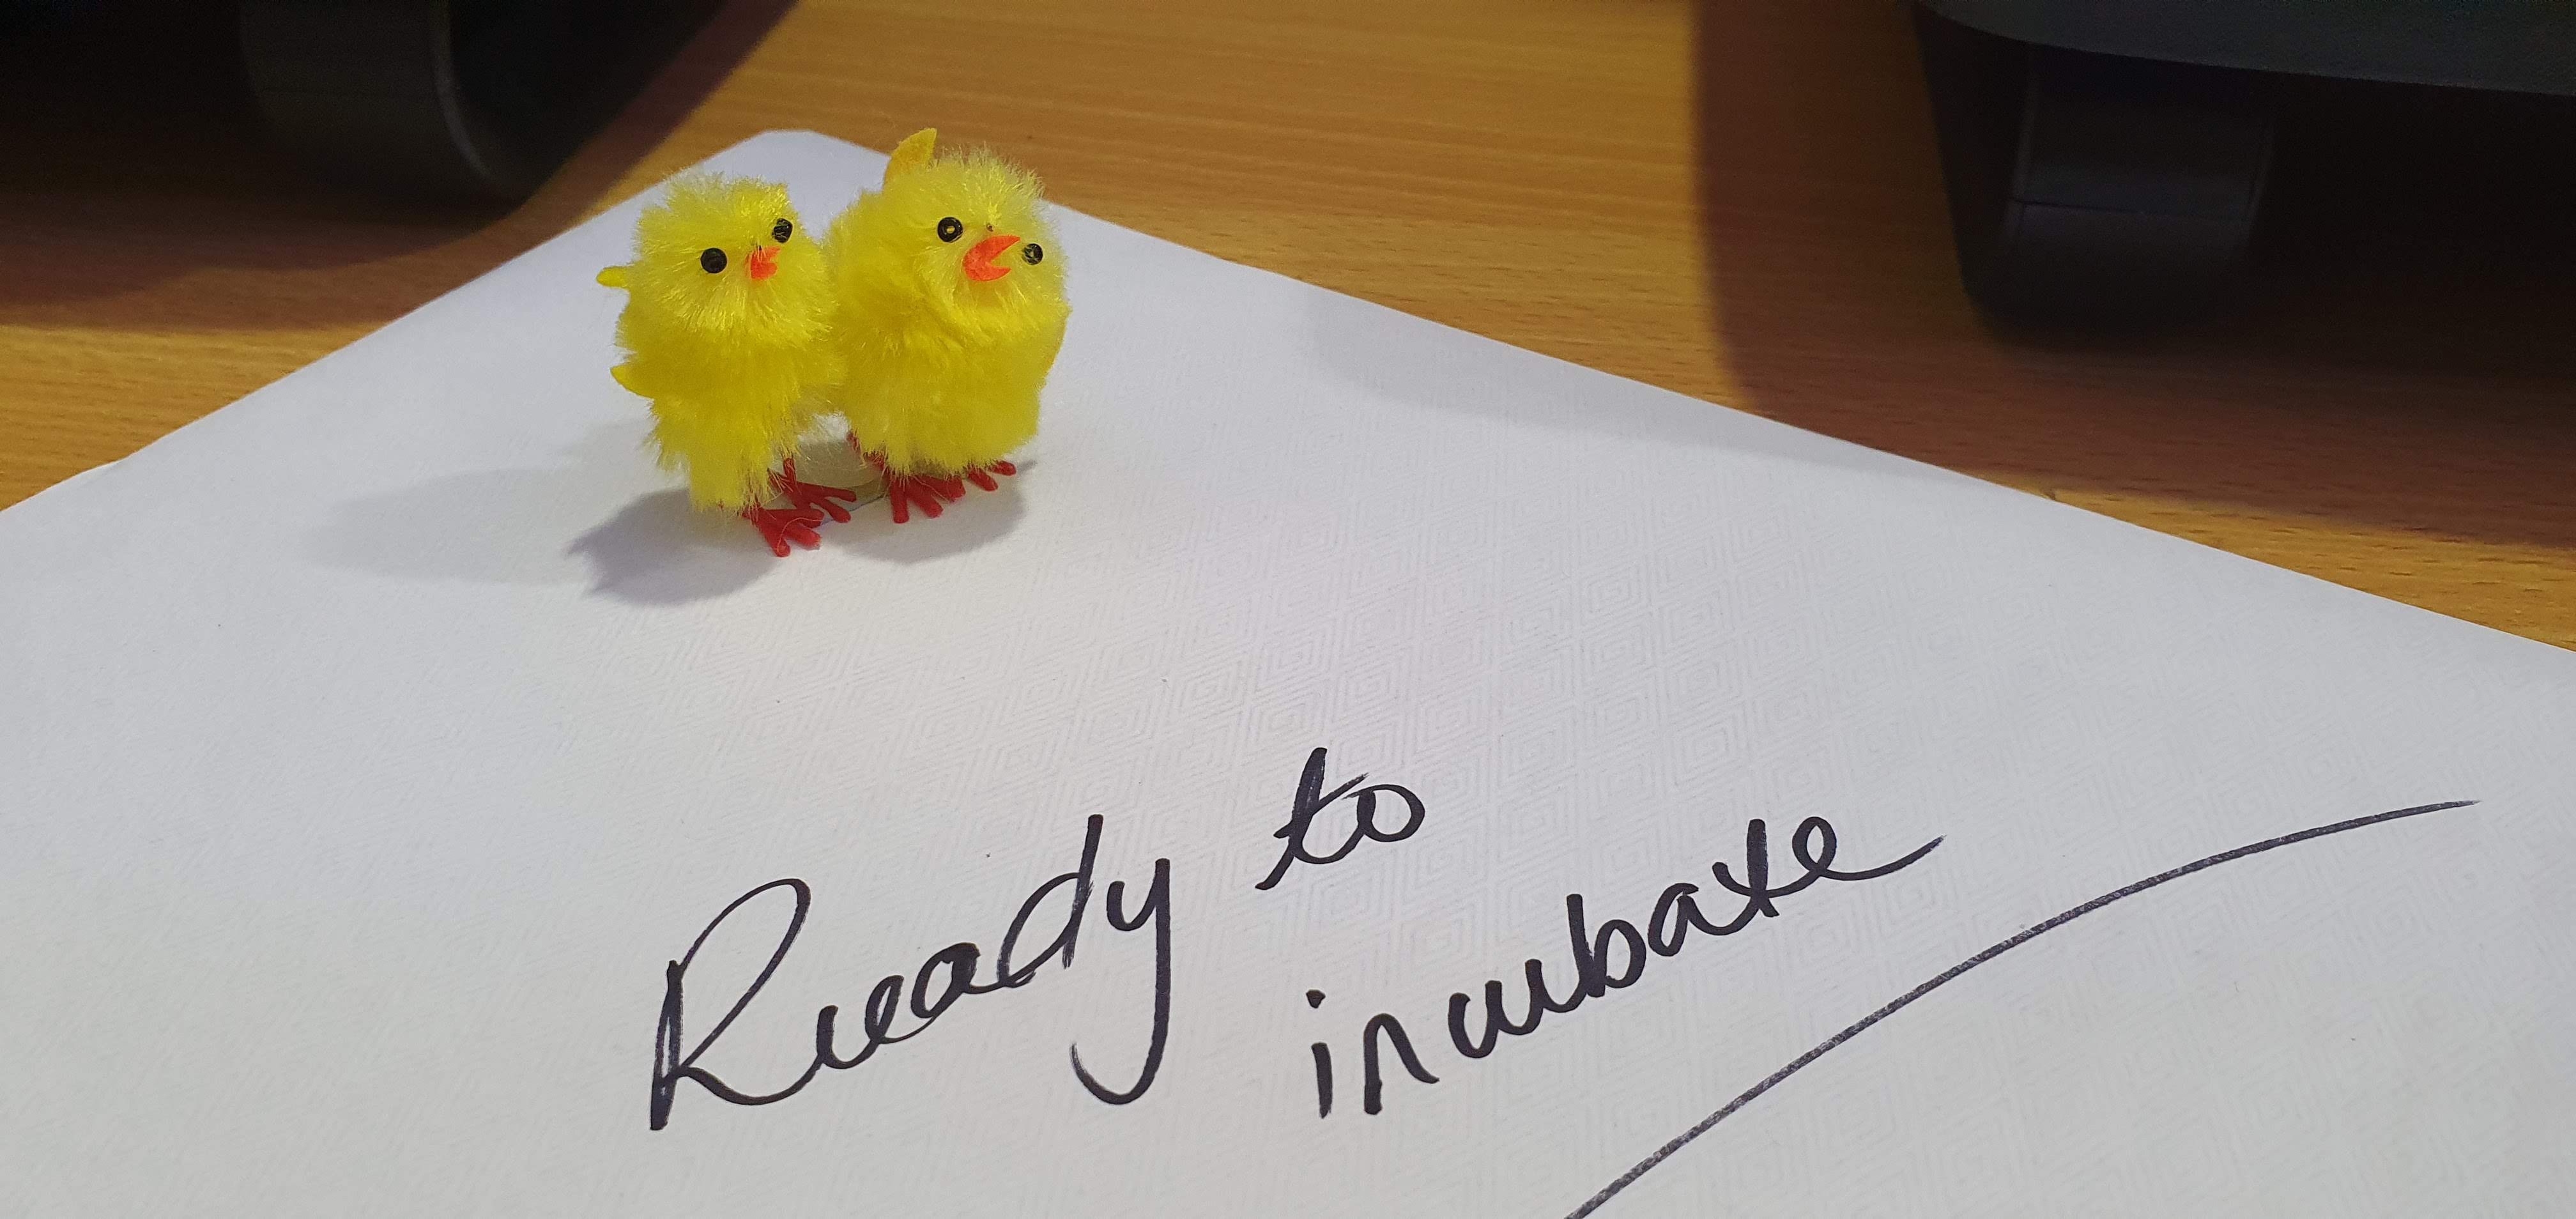 Ready to
incubate